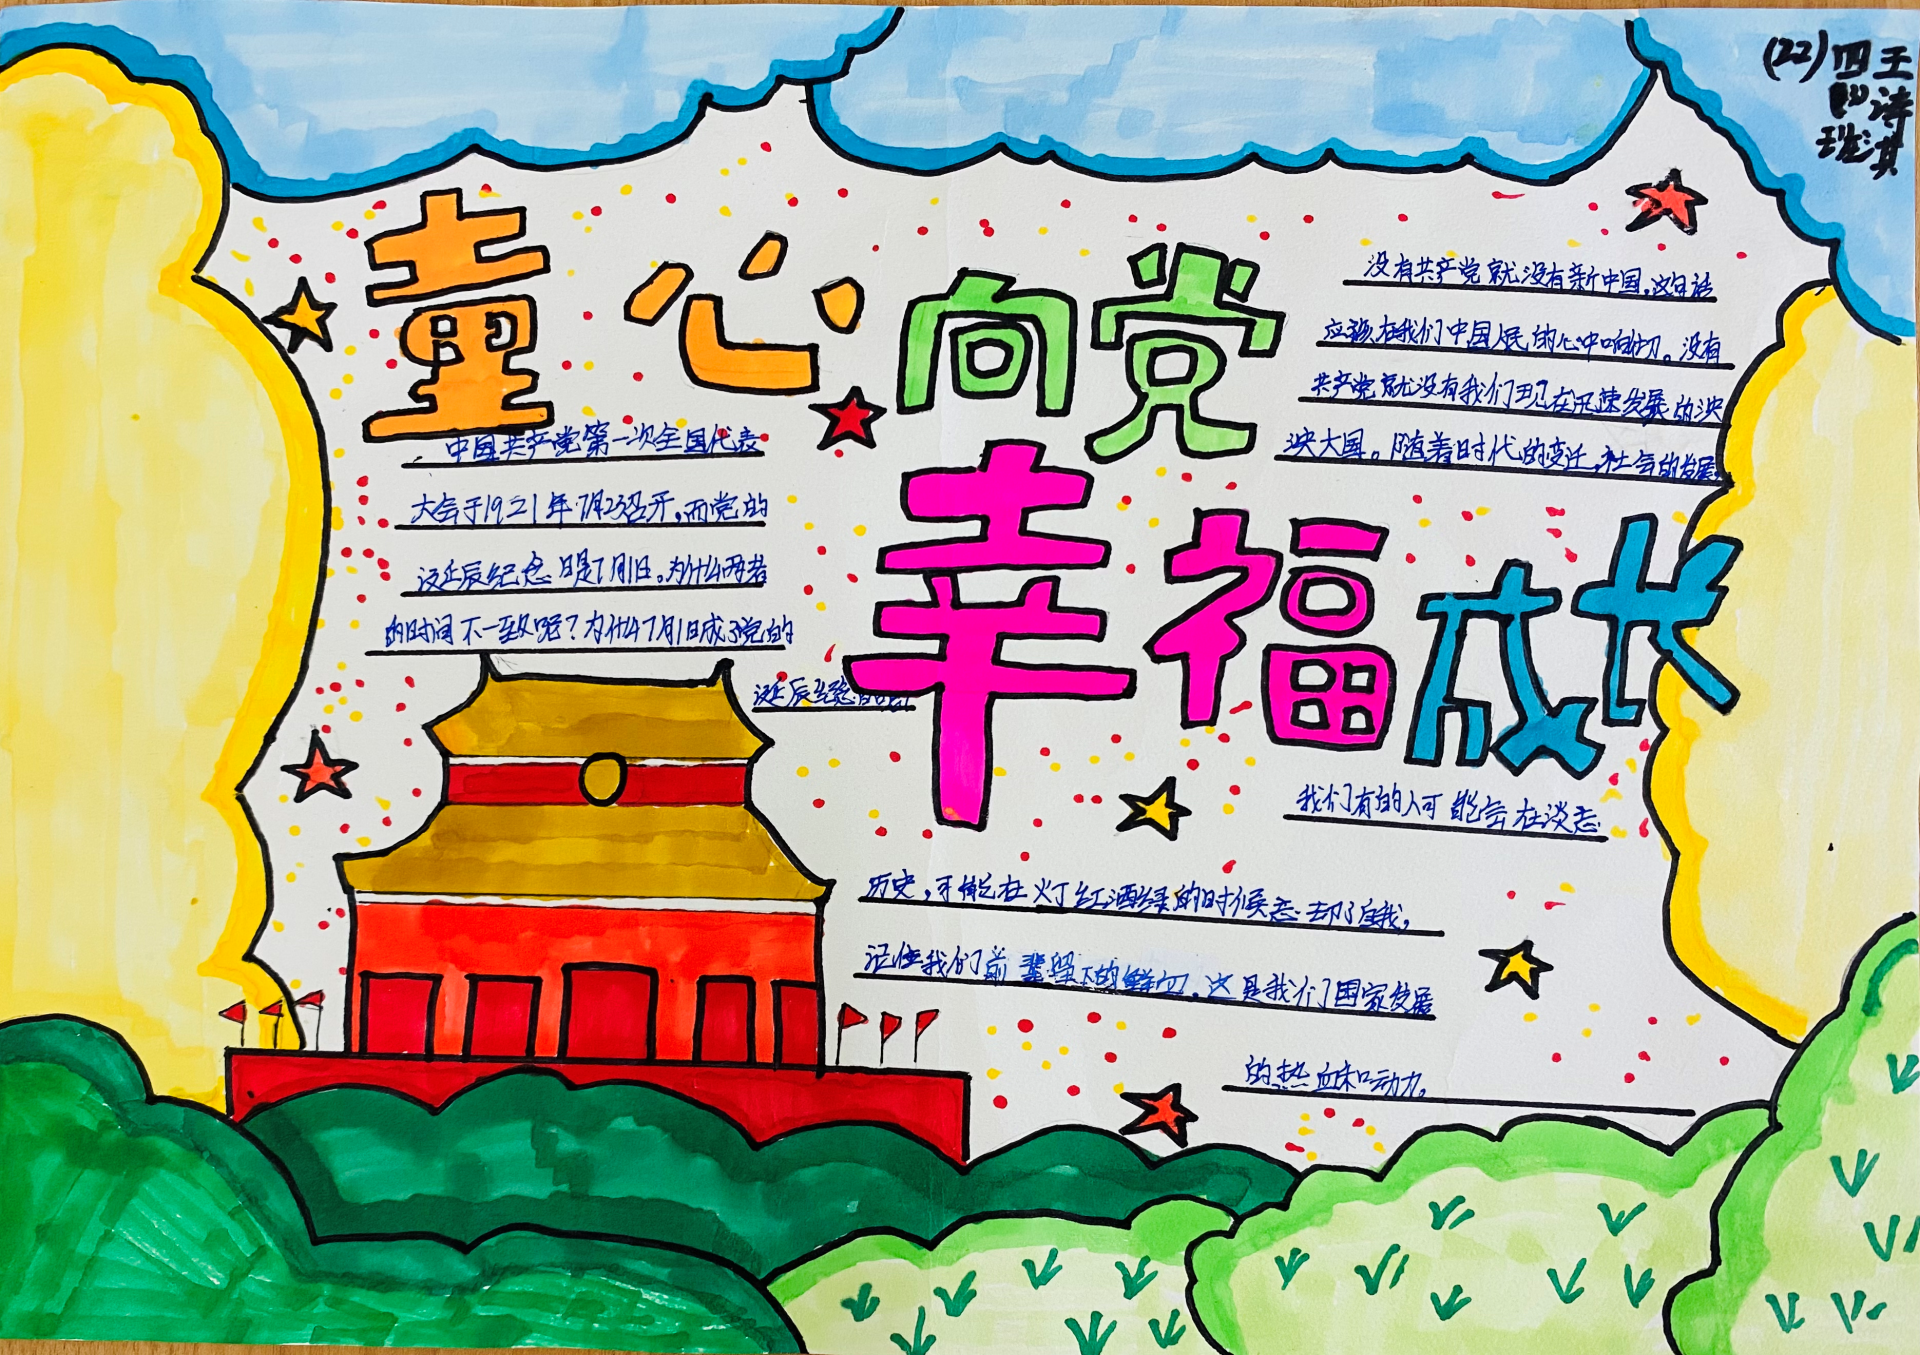 童心向党
幸福成长
(22) 四(4)班
王诗淇
中国共产党第一次全国代表
大会于1921年7月23召开，而党的
诞辰纪念日是7月1日。为什么两者
的时间不一致呢？为什么7月1日成了党的
诞辰纪念日
没有共产党就没有新中国，这句话
应该在我们中国人民的心中响切。没有
共产党就没有我们现在迅速发展的泱
泱大国。随着时代的变迁，社会的发展，
我们有的人可能会在淡忘
历史，不能在灯红酒绿的时候忘却了自我，
记住我们前辈留下的鲜血，这是我们国家发展
的热血和动力。